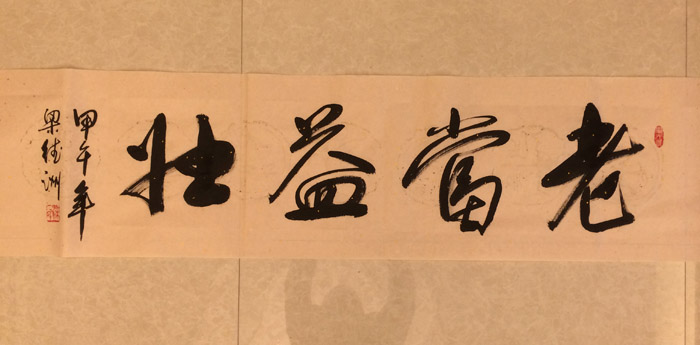 老當益壯
甲午年
梁德洲